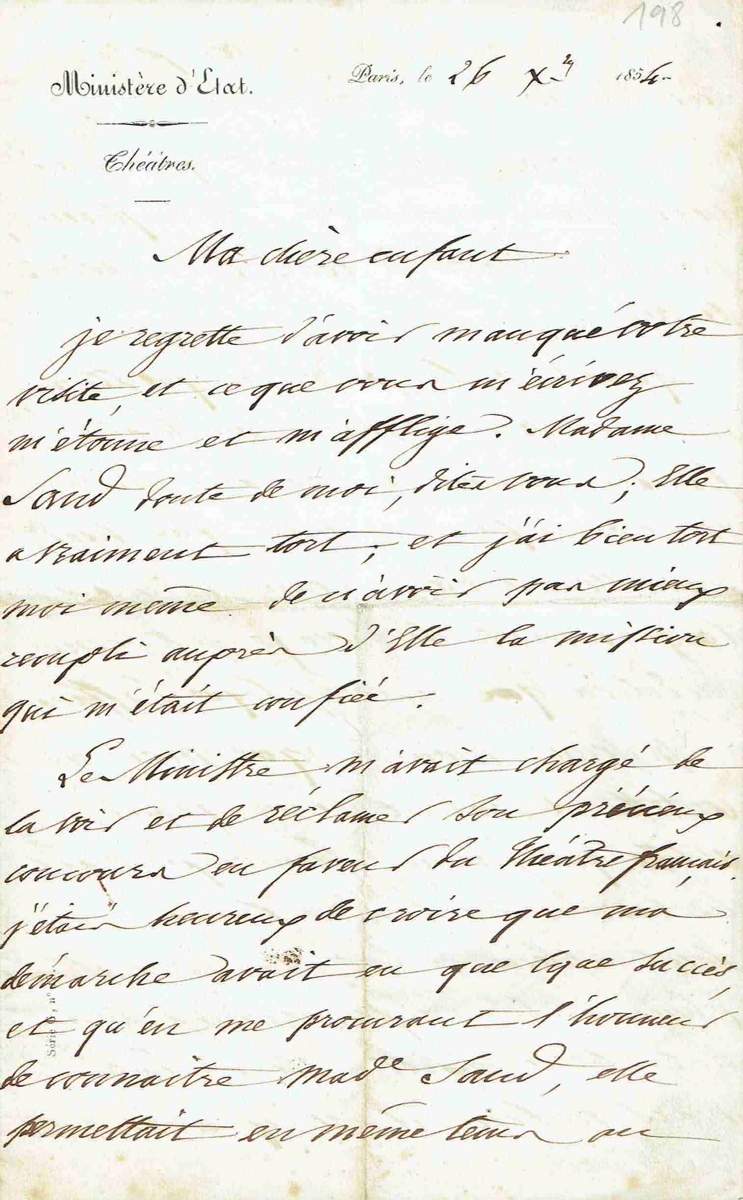 198
Ministère d'Etat.
Paris, le 26 Xbre 1854
Théâtres.
Ma chère enfant
je regrette d'avoir manqué votre
visite, et ce que vous m'écrivez
m'étonne et m'afflige. Madame
Sand doute de moi, dites vous ; Elle
a vraiment tort, et j'ai bien tort
moi même de n'avoir pas mieux
rempli auprès d'Elle la mission
qui m'était confiée.
Le Ministre m'avait chargé de
la voir et de réclamer son précieux
concours en faveur du Théâtre français.
j'étais heureux de croire que ma
démarche avait eu quelque succès,
et qu'en me procurant l'honneur
de connaître Made Sand, elle
permettait en même tems au
Série